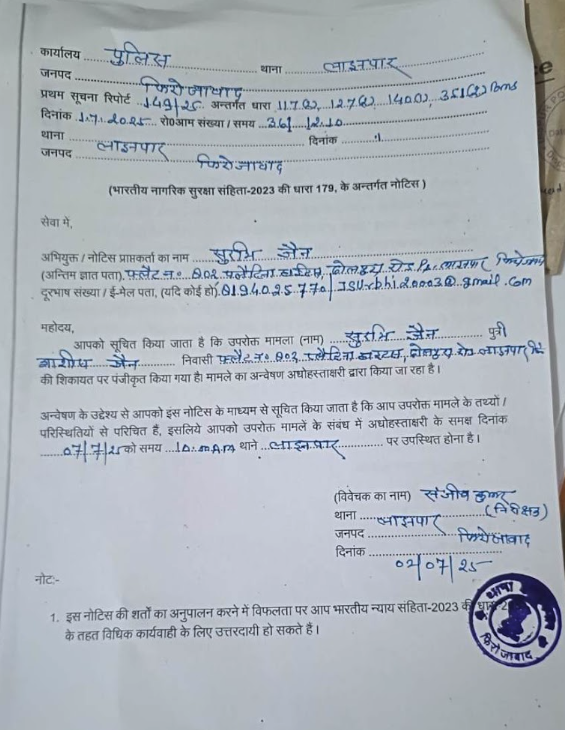 कार्यालय पुलिस थाना लाइनपार
जनपद फिरोजाबाद
प्रथम सूचना रिपोर्ट 149/25 अन्तर्गत धारा 117(2), 127(2) 140(3), 351(2) BNS
दिनांक 1.7.2025 रो०आम संख्या / समय 36/12.10
थाना लाइनपार दिनांक
जनपद फिरोजाबाद
(भारतीय नागरिक सुरक्षा संहिता-2023 की धारा 179, के अन्तर्गत नोटिस )
सेवा में,
अभियुक्त / नोटिस प्राप्तकर्ता का नाम सुरभि जैन
(अन्तिम ज्ञात पता) फ्लैट न० 202 रोड लाइनपार
दूरभाष संख्या / ई-मेल पता, (यदि कोई हो)
महोदय,
आपको सूचित किया जाता है कि उपरोक्त मामला (नाम) सुरभि जैन पुत्री
जैन निवासी फ्लैट न० 202 रोड लाइनपार
की शिकायत पर पंजीकृत किया गया है। मामले का अन्वेषण अधोहस्ताक्षरी द्वारा किया जा रहा है।
अन्वेषण के उद्देश्य से आपको इस नोटिस के माध्यम से सूचित किया जाता है कि आप उपरोक्त मामले के तथ्यों /
परिस्थितियों से परिचित है, इसलिये आपको उपरोक्त मामले के संबंध में अधोहस्ताक्षरी के समक्ष दिनांक
07/7/25 को समय 10:00AM थाने लाइनपार पर उपस्थित होना है।
(विवेचक का नाम) संजीव कुमार
थाना लाइनपार (निरीक्षक)
जनपद फिरोजाबाद
दिनांक
02/07/25
नोटः-
1. इस नोटिस की शर्तो का अनुपालन करने में विफलता पर आप भारतीय न्याय संहिता-2023 की धारा
के तहत विधिक कार्यवाही के लिए उत्तरदायी हो सकते हैं।
थाना
फिरोजाबाद